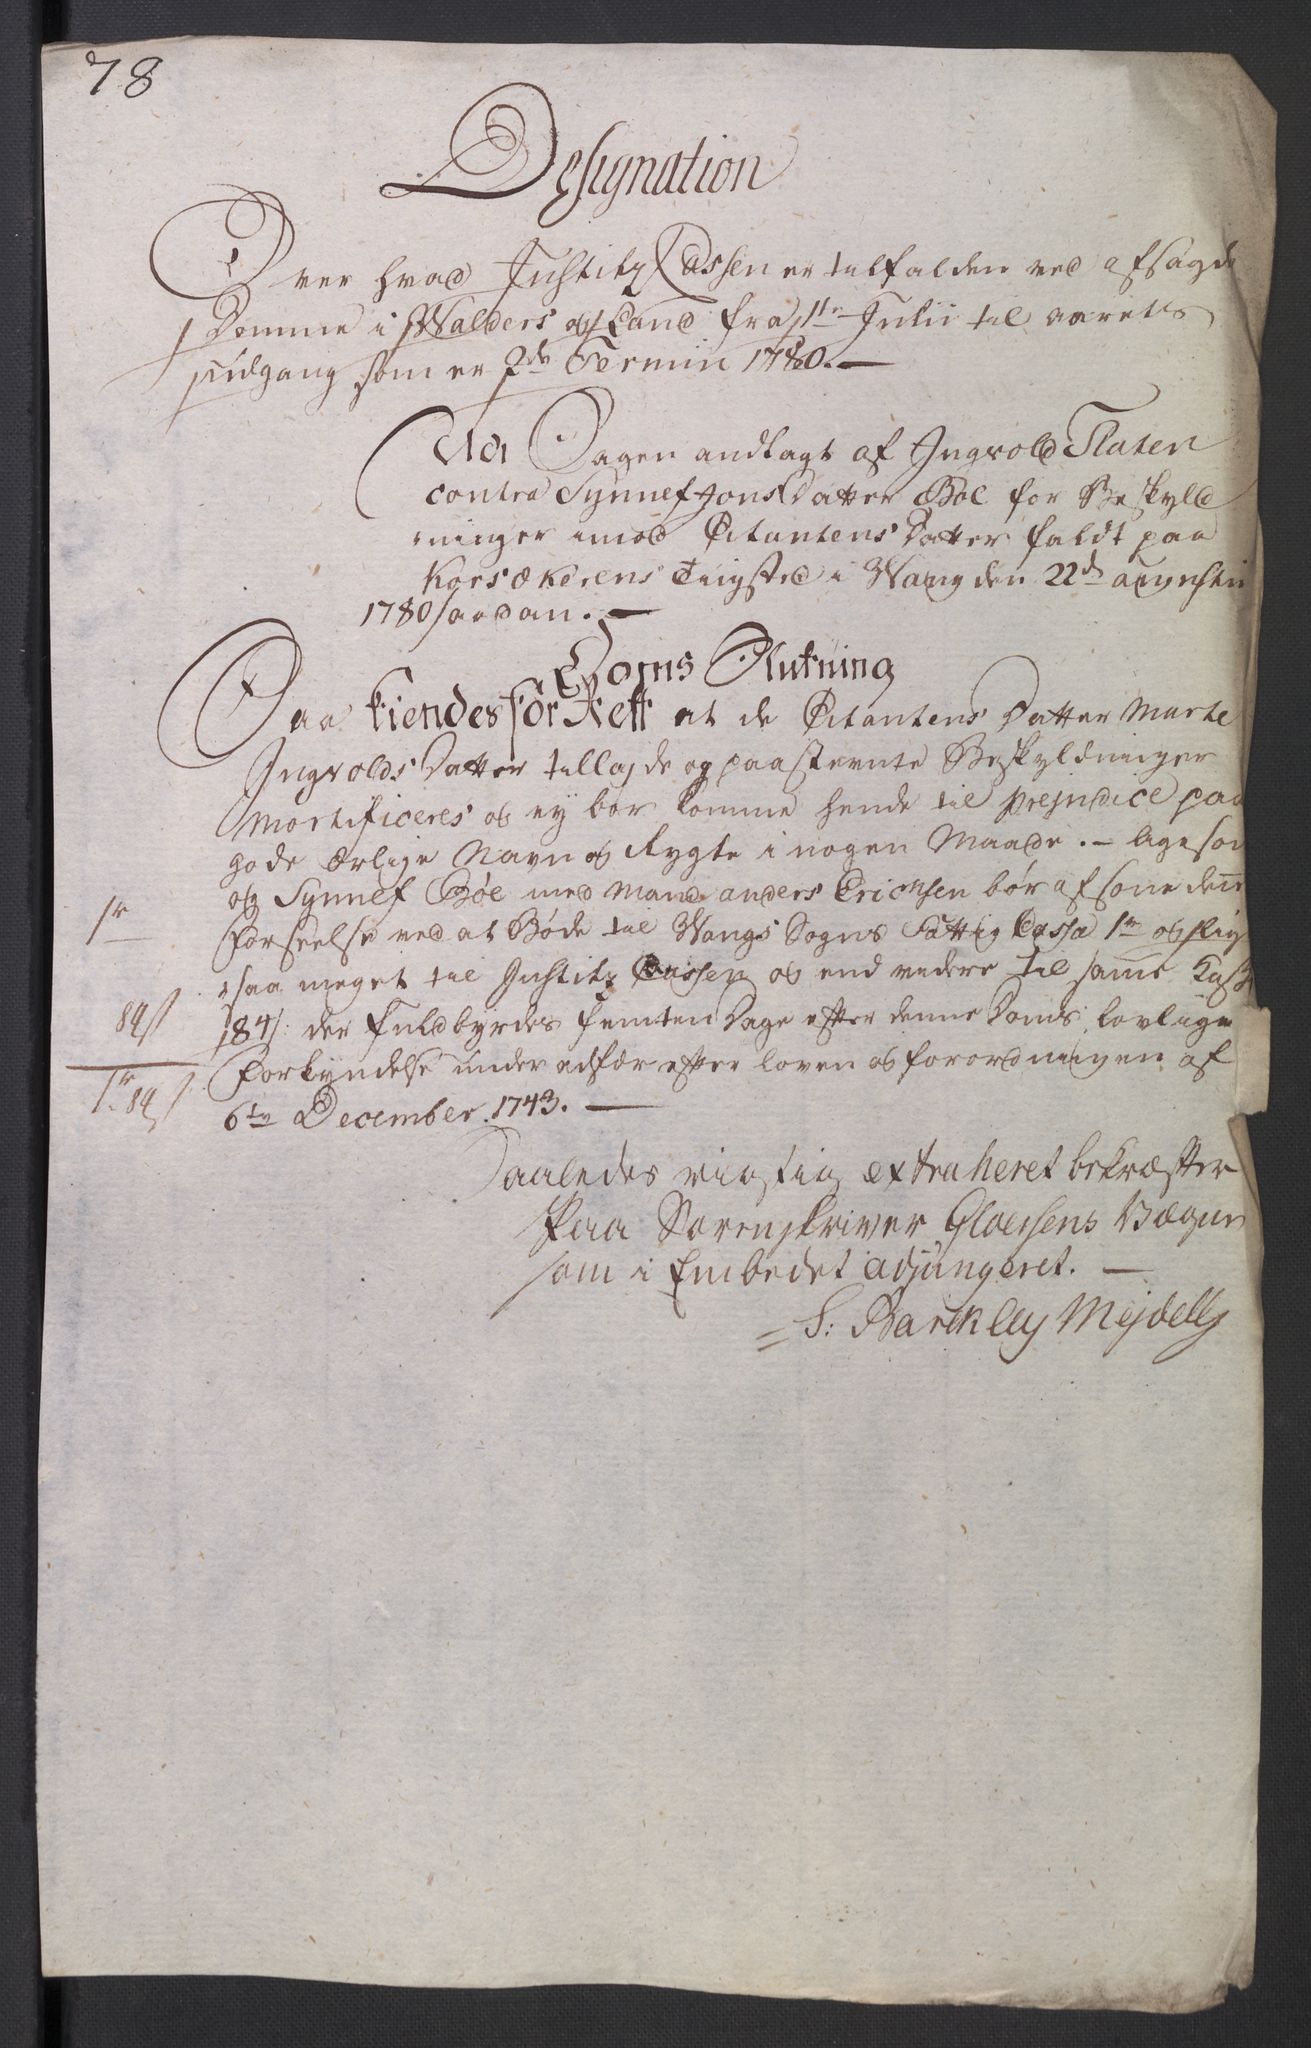 78
Designation
Over hvad Justitz Cassen er tilfalden ved afsagde
Domme i Walders og Land fra 1te Julii til aarets
udgang som er 2de Termin 1780. —
No 1 Sagen andlagt af Ingvold Flaten
contra Synnef Jons Datter Bøe for Beskyld
ninger imod Citantens Datter faldt paa
Korsøkerens Tingsted i Wang den 22de augustii
1780 saadan. —
Doms Slutning
Saa kiendes for Rett at de Citantens Datter Marte
Ingvolds Datter tillagde og paastevnte Beskyldninger
Mortificeres og ey bør komme hende til prejudice paa
gode Ærlige Navn og Rygte i nogen Maade. — ligesom
og Synnef Bøe med Mand anders Erichsen bør afsone denne
1r
Forseelse ved at Bøde til Wangs Sogns Fattig Cassa 1r og lige
saa meget til Justitz Cassen og end videre til samme Cassa
84s
84s: der Fuldbyrdes femten Dage efter denne Doms lovlige
1r 84s
Forkyndelse under adfær efter loven og forordningen af
6te December 1743. —
Saaledes rigtig extraheret bekræfter
Paa Sorenskriver Gloersens Vægne
som i Embedet adjungeret. —
S: Barckley Mejdell